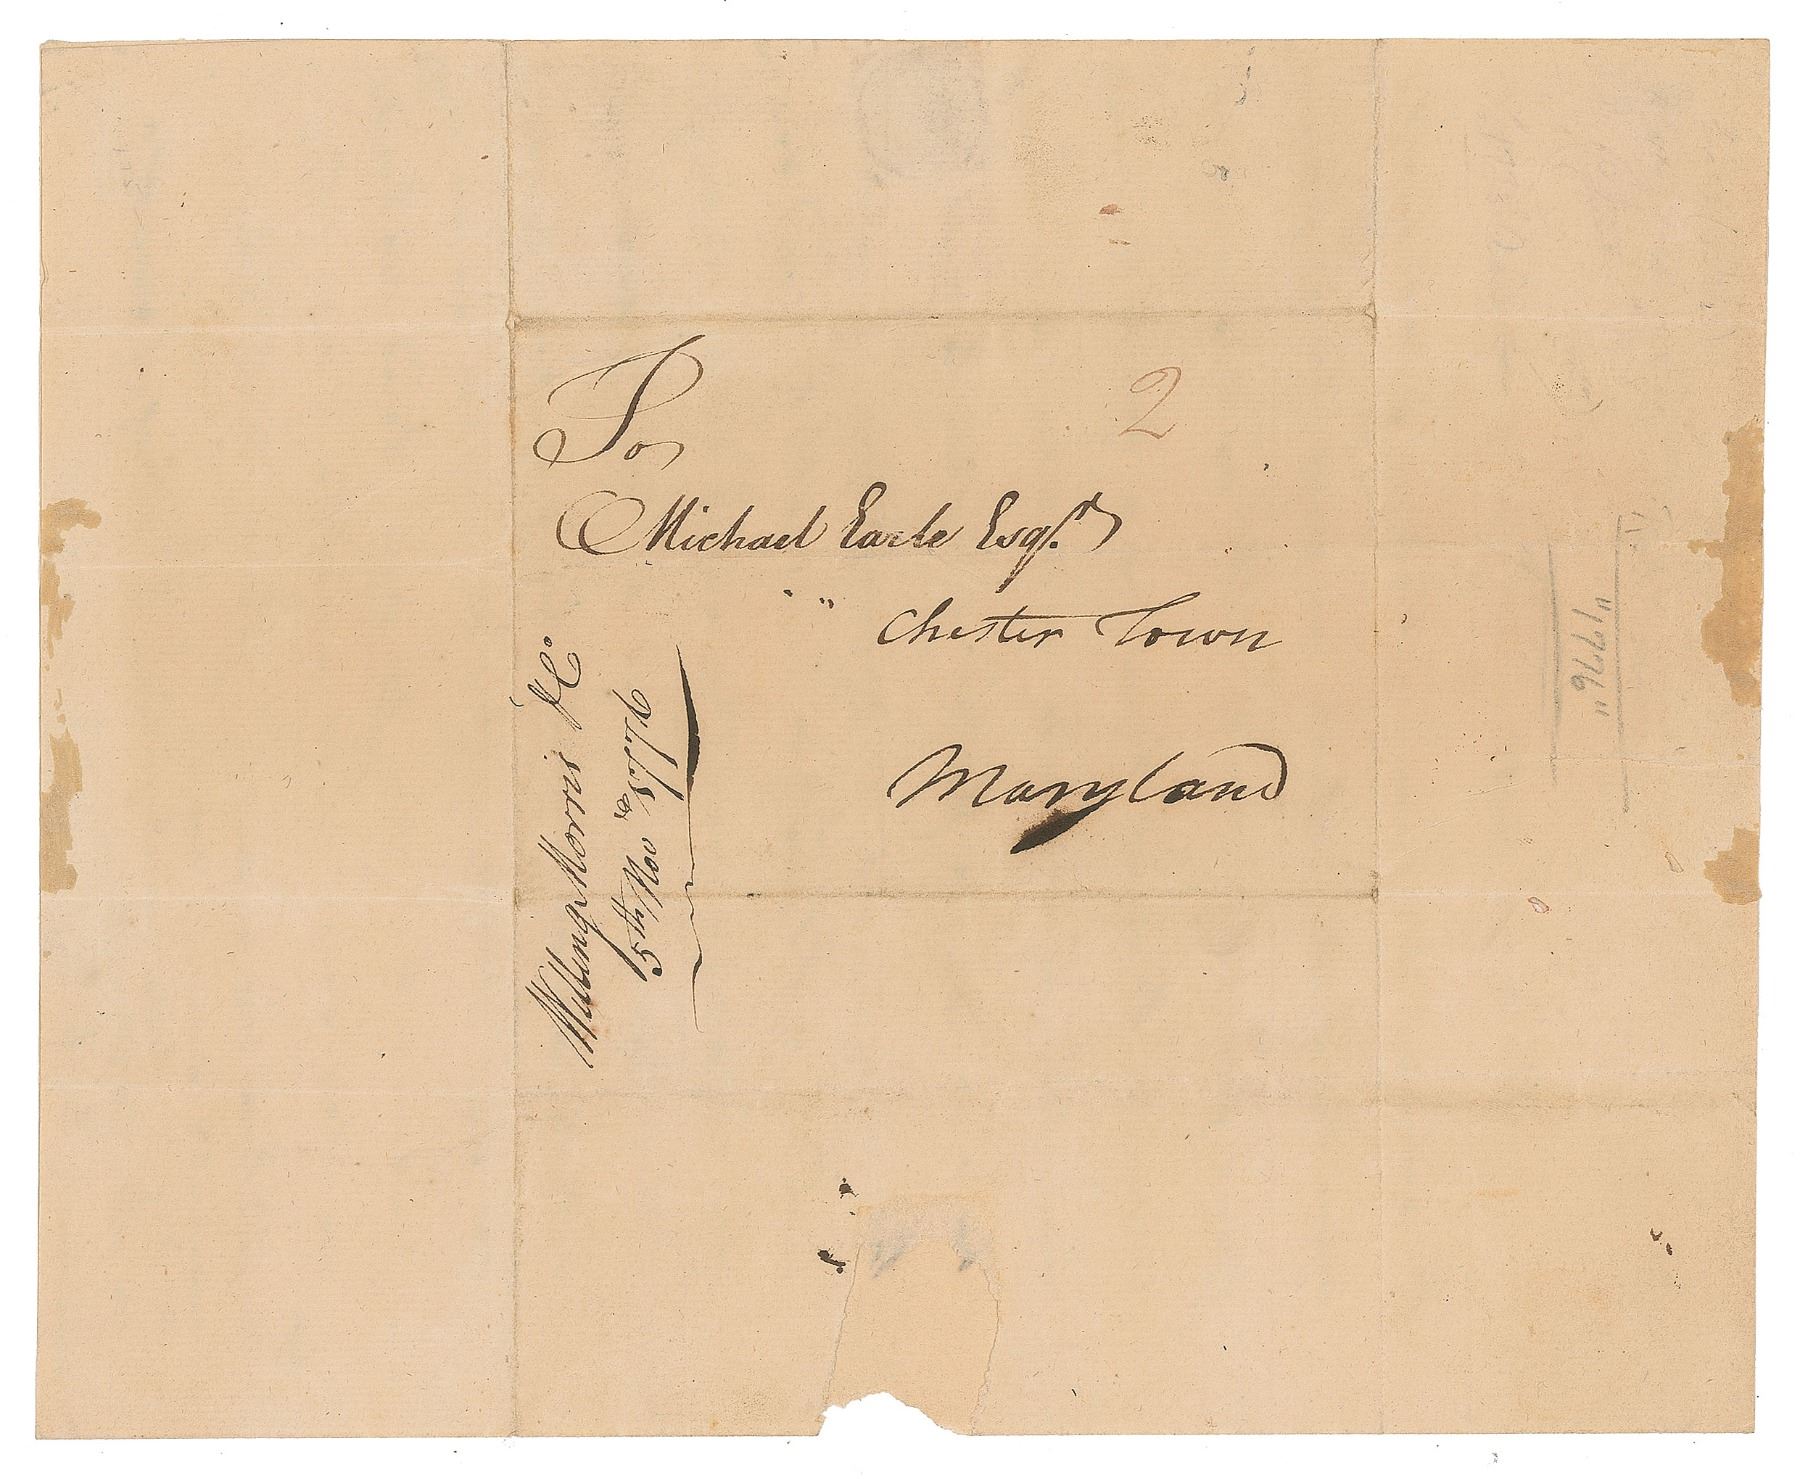 To
2
Michael Earle Esqr.
Chester Town
Maryland
Willing Morris & Co
5th Nov 1776
"1776"